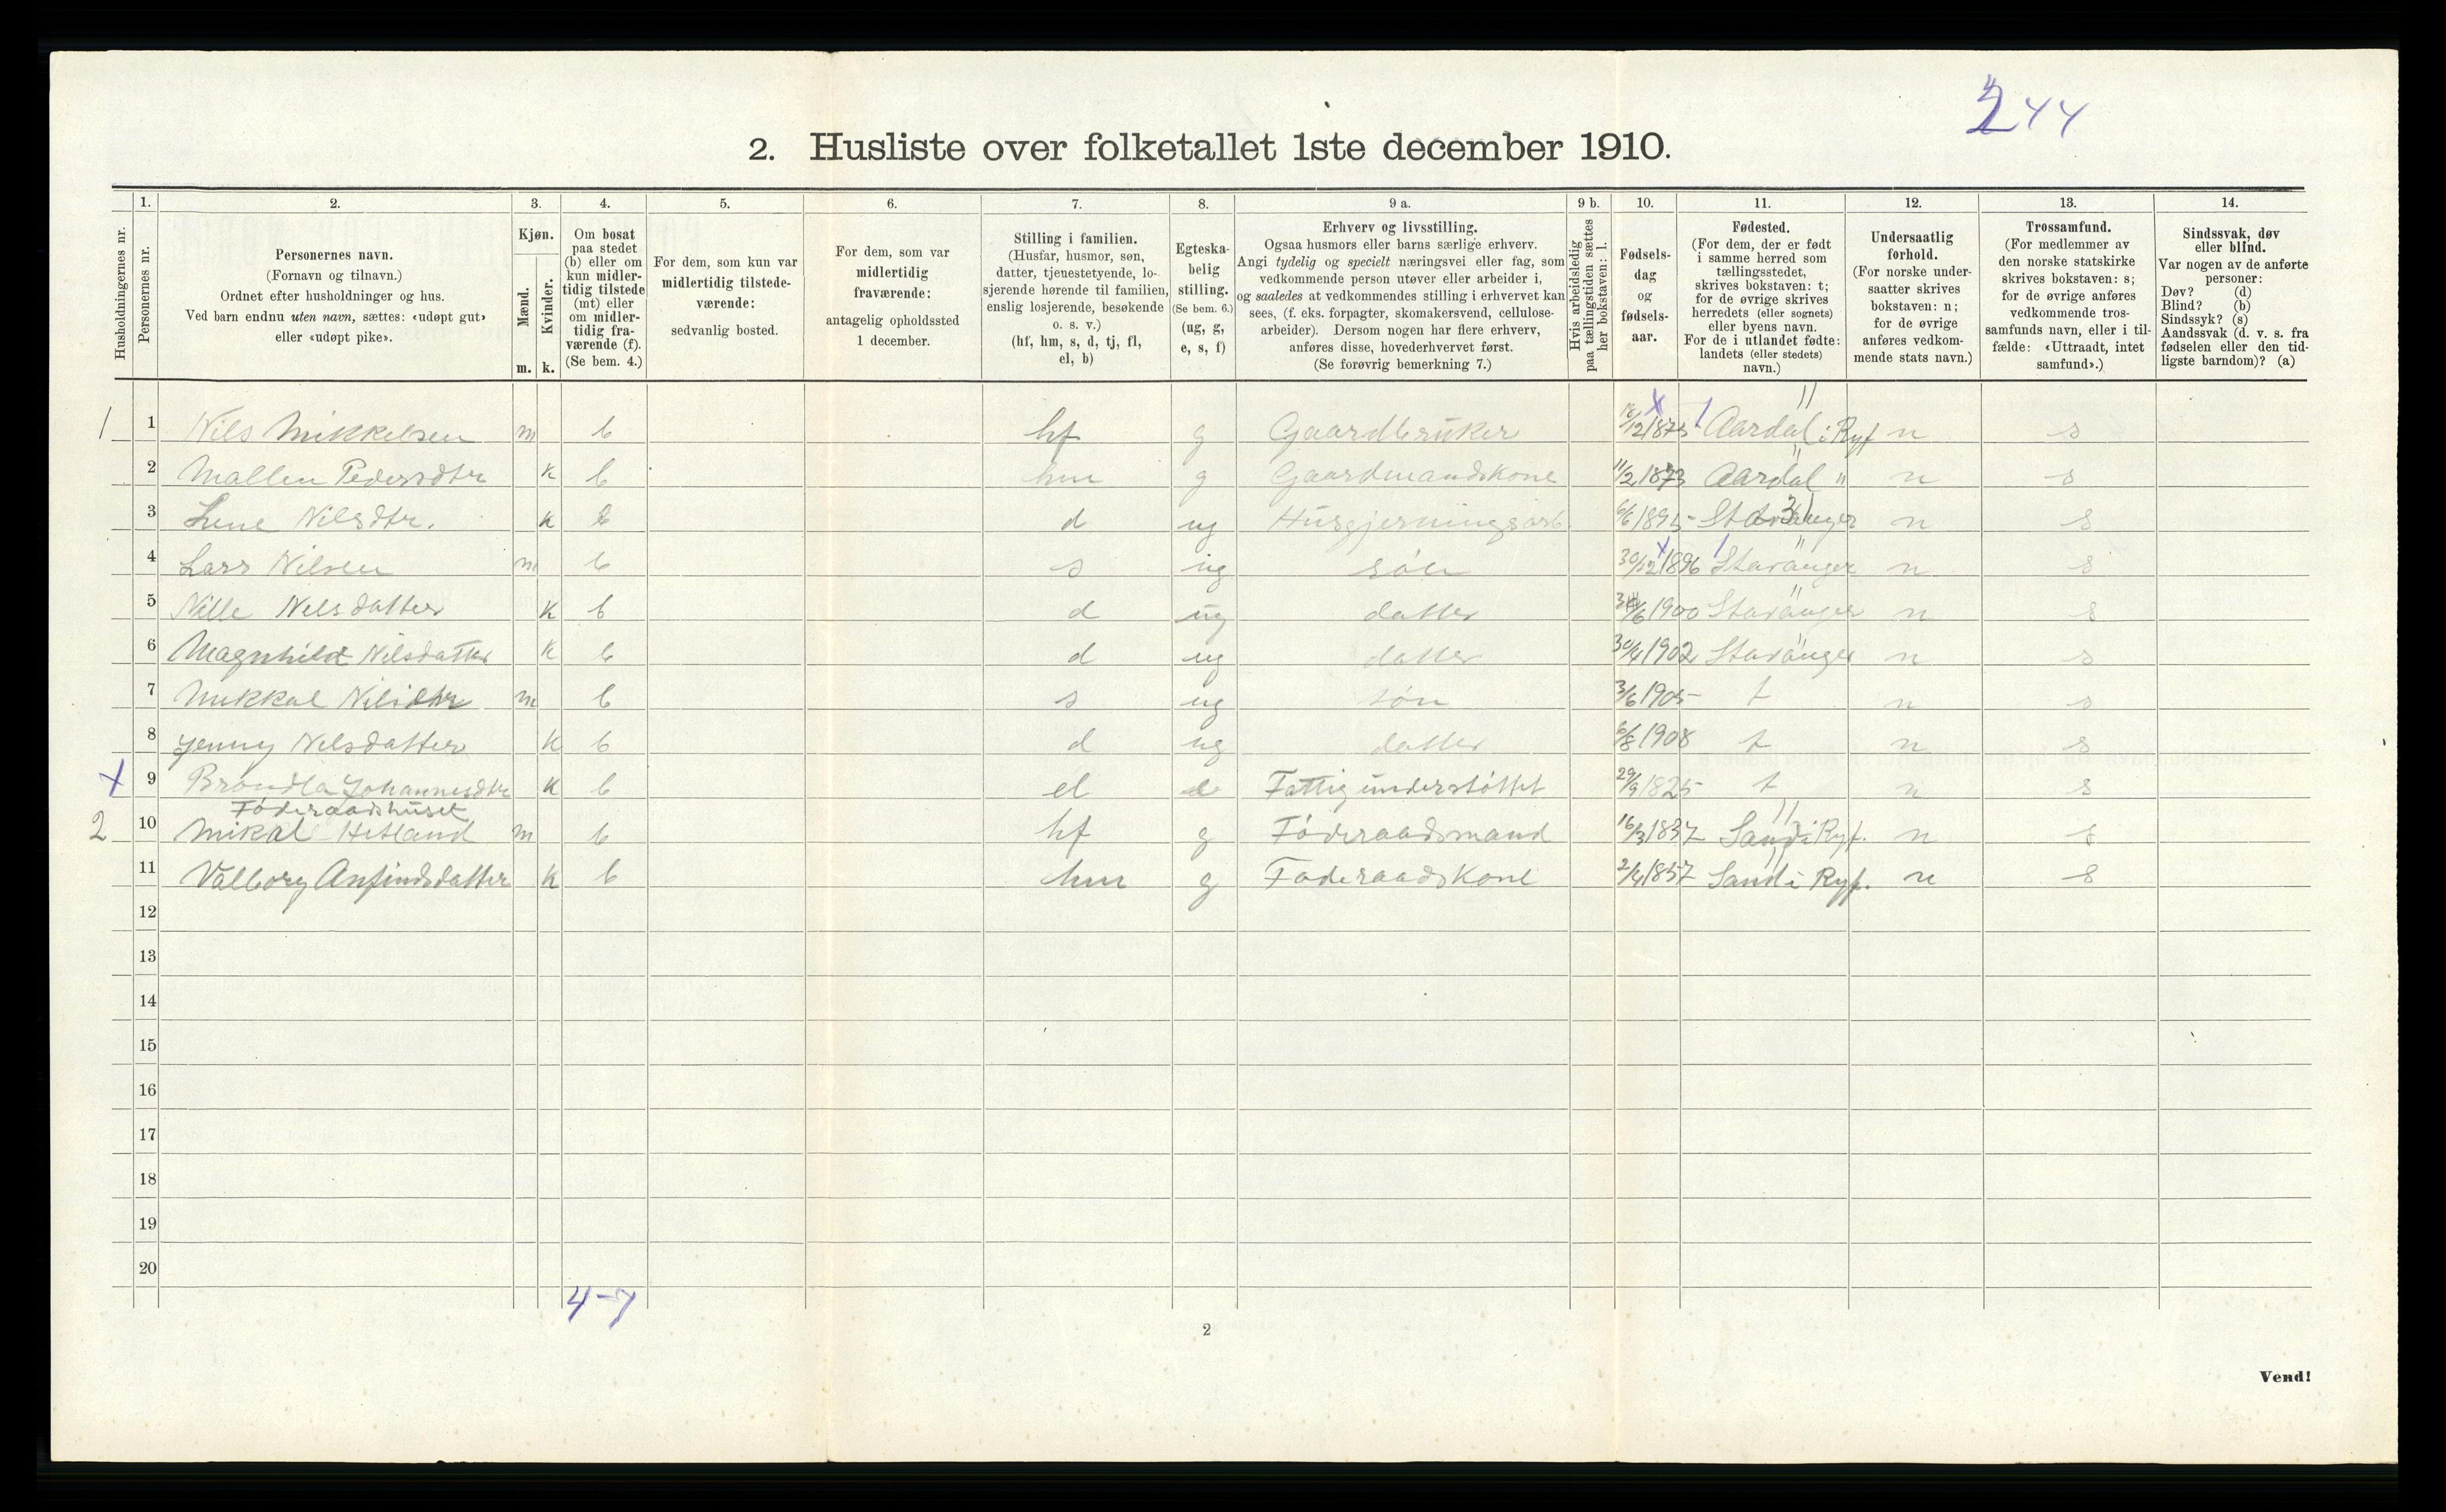 244
2. Husliste over folketallet 1ste december 1910.
Husholdningernes nr.
1.
Personernes nr.
2.
Personernes navn.
(Fornavn og tilnavn.)
Ordnet efter husholdninger og hus.
Ved barn endnu uten navn, sættes: «udøpt gut»
eller «udøpt pike».
3.
Kjøn.
Mænd.
Kvinder.
m. k.
4.
Om bosat
paa stedet
(b) eller om
kun midler-
tidig tilstede
(mt) eller
om midler-
tidig fra-
værende (f).
(Se bem. 4.)
5.
For dem, som kun var
midlertidig tilstede-
værende:
sedvanlig bosted.
6.
For dem, som var
midlertidig
fraværende:
antagelig opholdssted
1 december.
7.
Stilling i familien.
(Husfar, husmor, søn,
datter, tjenestetyende, lo-
sjerende hørende til familien,
enslig losjerende, besøkende
o. s. v.)
(hf, hm, s, d, tj, fl,
el, b)
8.
Egteska-
belig
stilling.
(Se bem. 6.)
(ug, g,
e, s, f)
9 a.
Erhverv og livsstilling.
Ogsaa husmors eller barns særlige erhverv.
Angi tydelig og specielt næringsvei eller fag, som
vedkommende person utøver eller arbeider i,
og saaledes at vedkommendes stilling i erhvervet kan
sees, (f. eks. forpagter, skomakersvend, cellulose-
arbeider). Dersom nogen har flere erhverv,
anføres disse, hovederhvervet først.
(Se forøvrig bemerkning 7.)
9 b.
Hvis arbeidsledig
paa tællingstiden sættes
her bokstaven: l.
10.
Fødsels-
dag
og
fødsels-
aar.
11.
Fødested.
(For dem, der er født
i samme herred som
tællingsstedet,
skrives bokstaven: t;
for de øvrige skrives
herredets (eller sognets)
eller byens navn.
For de i utlandet fødte:
landets (eller stedets)
navn.)
12.
Undersaatlig
forhold.
(For norske under-
saatter skrives
bokstaven: n;
for de øvrige
anføres vedkom-
mende stats navn.)
13.
Trossamfund.
(For medlemmer av
den norske statskirke
skrives bokstaven: s;
for de øvrige anføres
vedkommende tros-
samfunds navn, eller i til-
fælde: «Uttraadt, intet
samfund».)
14.
Sindssvak, døv
eller blind.
Var nogen av de anførte
personer:
Døv? (d)
Blind? (b)
Sindssyk? (s)
Aandssvak (d. v. s. fra
fødselen eller den tid-
ligste barndom)? (a)
1 1 Nils Mikkelsen m b hf g Gaardbruker 18/12 1875 Aardal i Ryf n s
2 Mallen Pedersdtr k b hm g Gaardmandskone 11/2 1873 Aardal " n s
3 Lene Nilsdtr. k b d ug Husgjerningsarb. 6/6 1895 Stavanger n s
4 Lars Nilsen m b s ug søn 30/12 1896 Stavanger n s
5 Nille Nilsdatter k b d ug datter 1900 Stavanger n s
6 Magnhild Nilsdatter k b d ug datter 30/4 1902 Stavanger n s
7 Mikkal m b s ug søn 3/6 1905 t n s
8 Jenny Nilsdatter k b d ug datter 6/8 1908 t n s
x 9 Johannesdtr k b el e Fattigunderstøttet 29/9 1825 t n s
Føderaadshuset
2 10 Mikal Hetland m b hf g Føderaadsmand 16/3 1837 Sand i Ryf. n s
11 Valborg Anfindsdatter k b hm g Føderaadskone 2/4 1857 Sand i Ryf. n s
12
13
14
15
16
17
18
19
20
4-7
2
Vend!